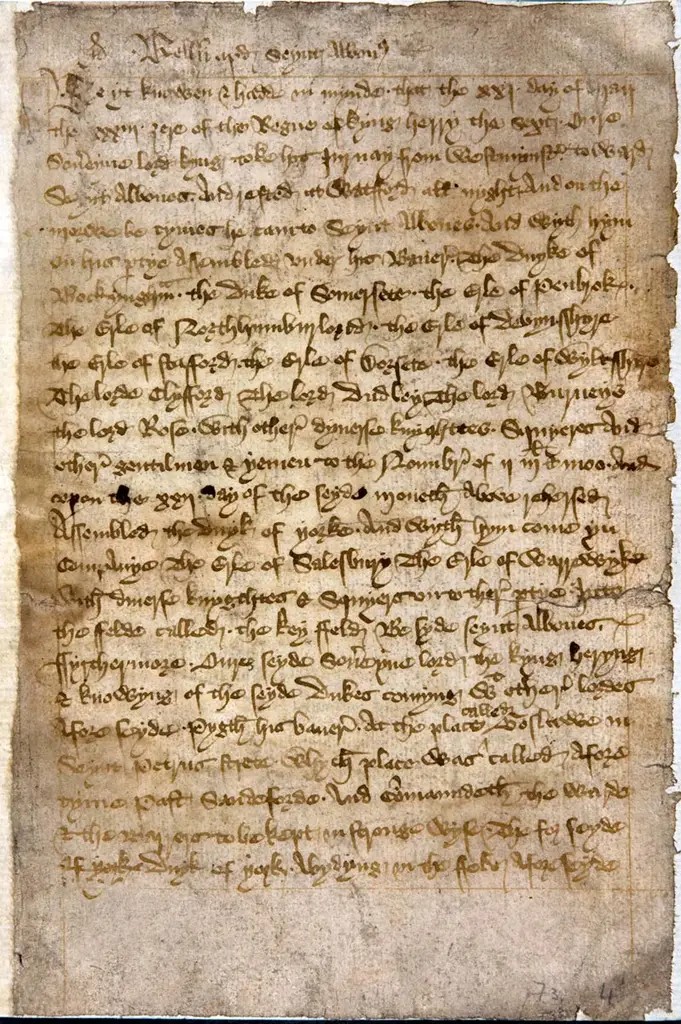 Seynt Albons
Be yt knowen & hadde in mynde that the xxi day of May
the xxxiii zere of the Regne of kyng herry the sext Oure
Souereyne lord kyng toke his Jurnay from Westminster toward
Seynt Albones And rested at Watford all nyght And on the
morwe be tymes he cam to Seynt Albones And wyth hym
on his partye Assembled vnder his Baner The Duyke of
Bockyngham the duke of Somersete the Erle of Penbrok
The Erle of Northhumbirlond the Erle of Devynsshyre
the Erle of Stafford the Erle of Dorsete the Erle of Wyltsshyre
The lorde Clyfford The lord Dudley The lord Burneys
the lord Rose With other dyuerse knyghttes Squyeres And
other gentilmen & yemen to the Nombre of ii Ml & moo And
vpon the xxii day of the seyde moneth Above rehersed
Assembled the Duyk of yorke And wyth hym come yn
Companye The Erle of Salesbury The Erle of Warrewyke
With diuerse knyghttes & Squyers vn to ther partye Into
the felde called the key ffeld Besyde seynt Albones
ffyrthermore Oure seyde Souereyne lord the kyng heryng
& knowyng of the seyde Dukes comyng with other lordes
Afore seyde Pygth his baner At the place called Boslawe in
Seynt Petrus Strete Whych place was called Afore
tyme Past Sandeforde And Commandeth the warde
& the barrers to be kept in stronge wyse The for seyde
Duyk of york Abydyng in the feld Afore seyde
73
4